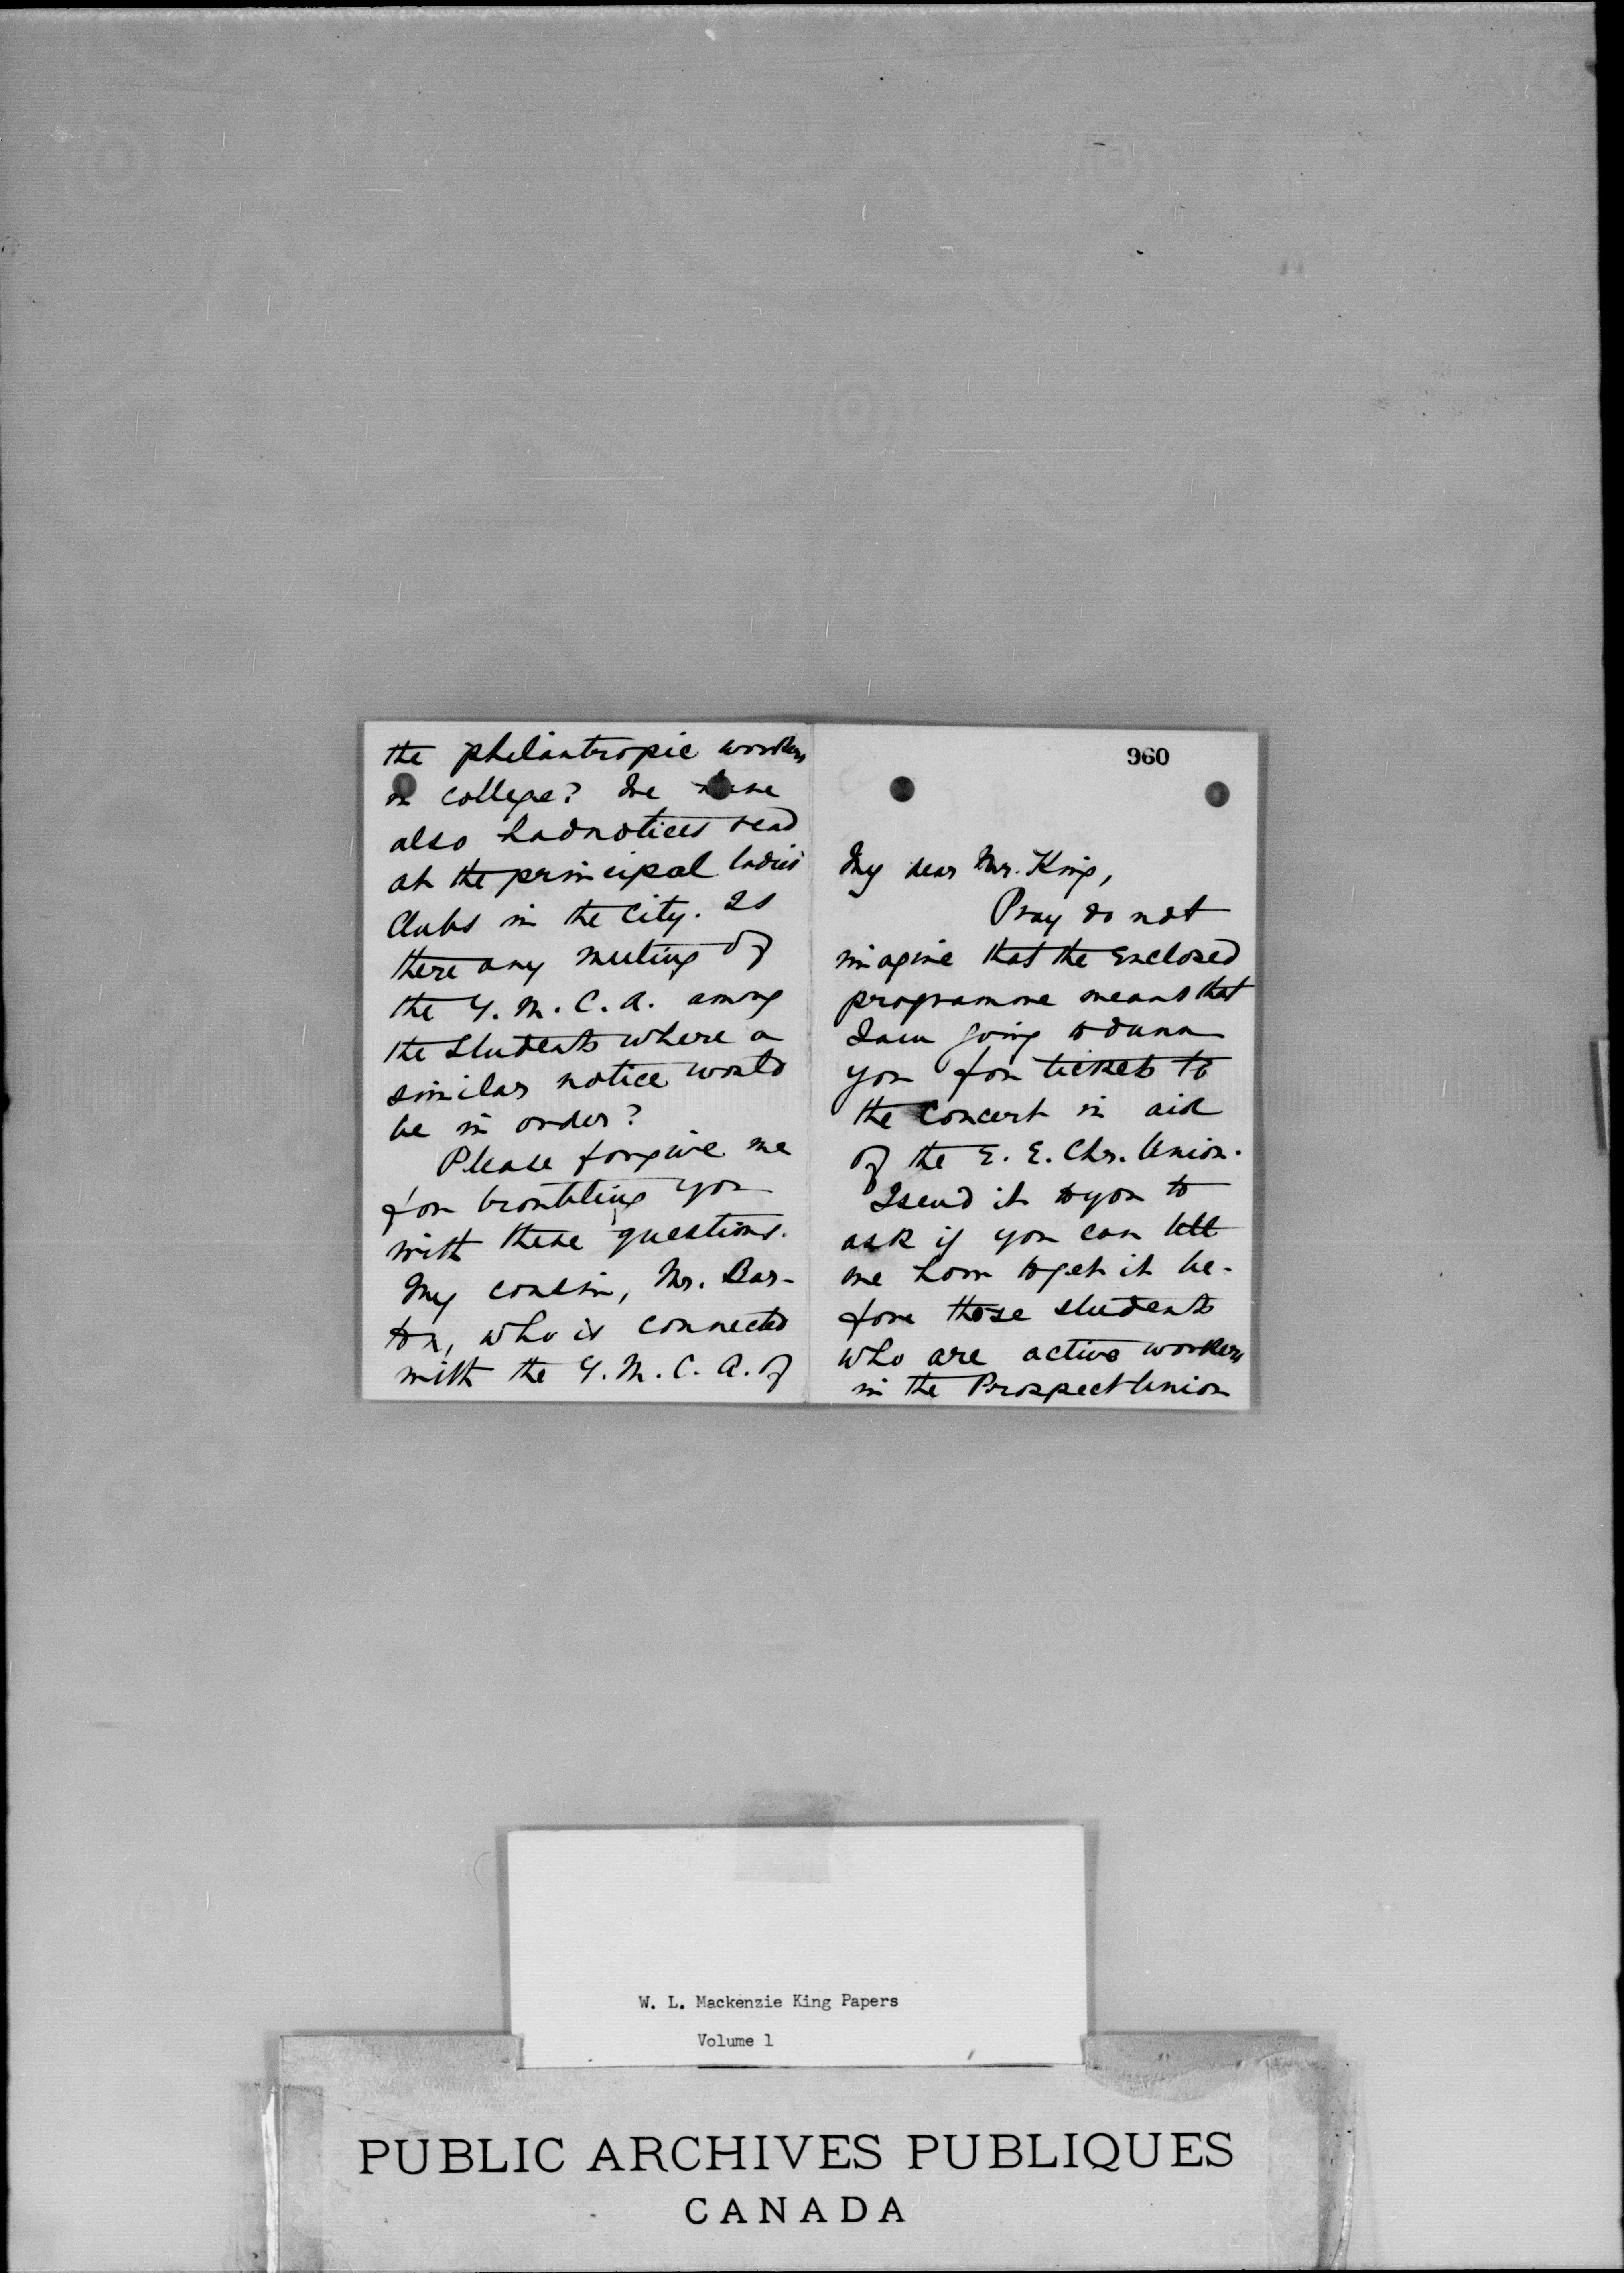 the philantropic workers
in college? We have
also had notices read
at the principal ladies'
Clubs in the City. Is
there any meeting of
the Y. M. C. A. among
the students where a
similar notice would
be in order?
Please forgive me
for troubling you
with these questions.
My cousin, Mr. Bar-
ton, who is connected
with the Y. M. C. A. of
960
My dear Mr. King,
Pray do not
imagine that the enclosed
programme means that
I am going to dunn
you for tickets to
the concert in aid
of the E. E. Chr. Union.
I send it to you to
ask if you can tell
me how to get it be-
fore those students
who are active workers
in the Prospect Union
W. L. Mackenzie King Papers
Volume 1
PUBLIC ARCHIVES PUBLIQUES
CANADA